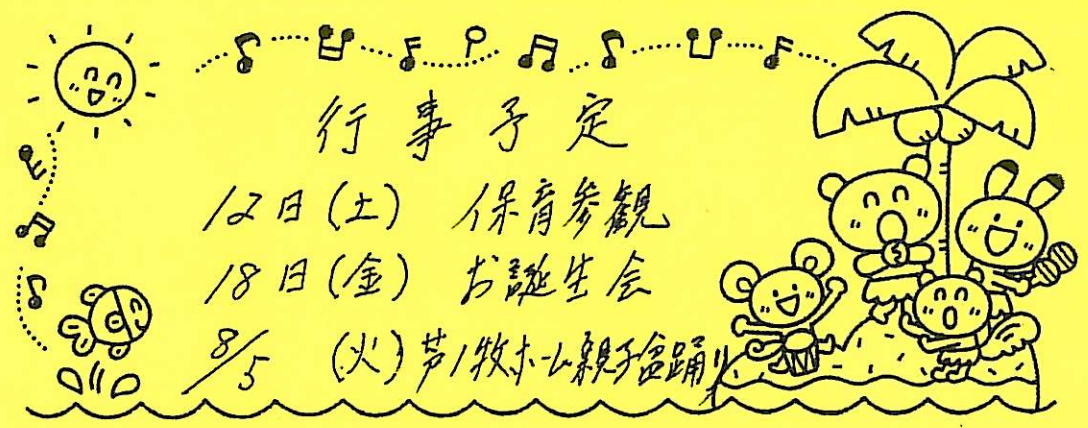 行事予定
12日(土) 保育参観
18日(金) お誕生会
8/5 (火) 芦ノ牧ホーム親子盆踊り